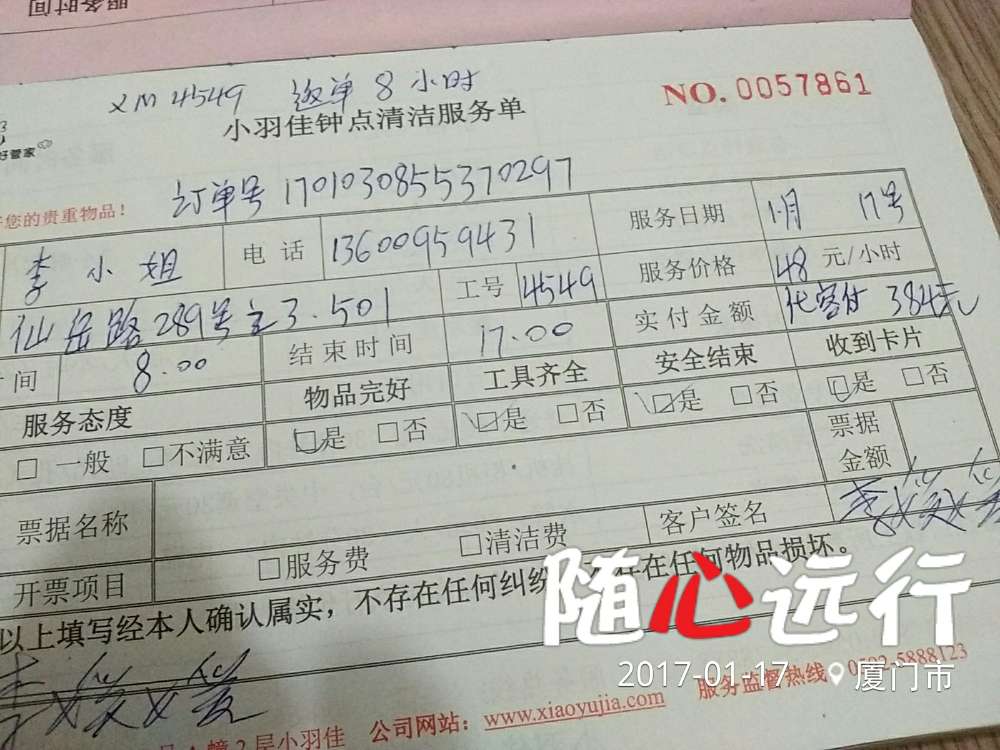 服务时间
XM4549 返单 8小时
NO. 0057861
小羽佳钟点清洁服务单
好管家
订单号 1701030855370297
您的贵重物品！
李小姐 电话 13600959431 服务日期 1月 17号
工号 4549 服务价格 48 元/小时
仙岳路289号之3.501 实付金额 代客付 384元
时间 8.00 结束时间 17.00
服务态度 物品完好 工具齐全 安全结束 收到卡片
□一般 □不满意 □是 □否 □是 □否 □是 □否 □是 □否
票据名称 票据金额
开票项目 □服务费 □清洁费 客户签名
以上填写经本人确认属实，不存在任何纠纷 存在任何物品损坏。
随心远行
2017-01-17 厦门市
服务监督热线：0592-5888123
幢2层小羽佳 公司网站：www.xiaoyujia.com